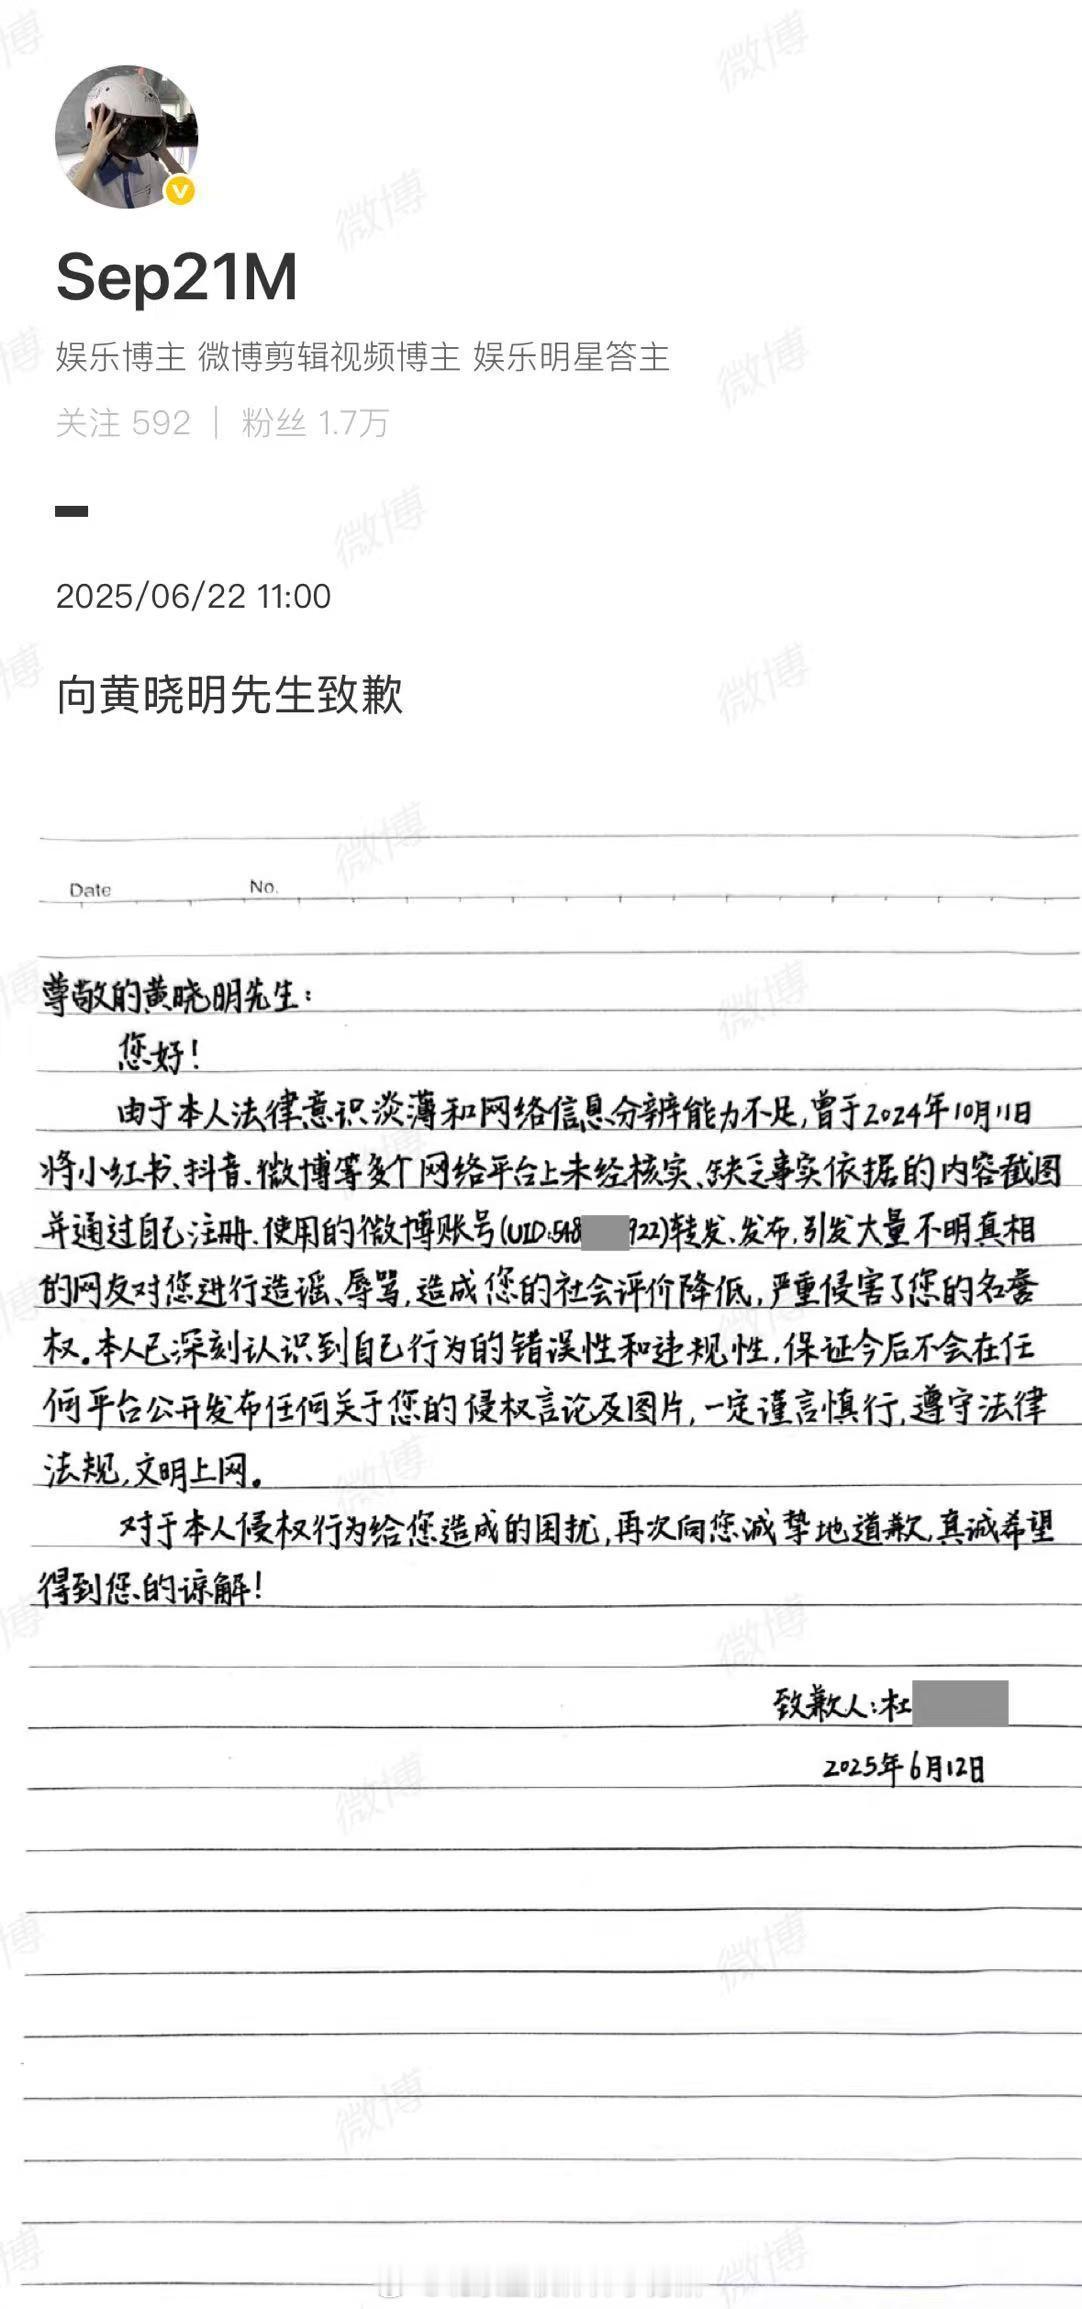 Sep21M
娱乐博主 微博剪辑视频博主 娱乐明星答主
关注 592 | 粉丝 1.7万
2025/06/22 11:00
向黄晓明先生致歉
Date No.
尊敬的黄晓明先生：
您好！
由于本人法律意识淡薄和网络信息分辨能力不足，曾于2024年10月11日
将小红书、抖音、微博等多个网络平台上未经核实、缺乏事实依据的内容截图
并通过自己注册、使用的微博账号(UID:548 922)转发、发布，引发大量不明真相
的网友对您进行造谣、辱骂，造成您的社会评价降低，严重侵害了您的名誉
权。本人已深刻认识到自己行为的错误性和违规性，保证今后不会在任
何平台公开发布任何关于您的侵权言论及图片，一定谨言慎行，遵守法律
法规，文明上网。
对于本人侵权行为给您造成的困扰，再次向您诚挚地道歉，真诚希望
得到您的谅解！
致歉人：杜
2025年6月12日
微博